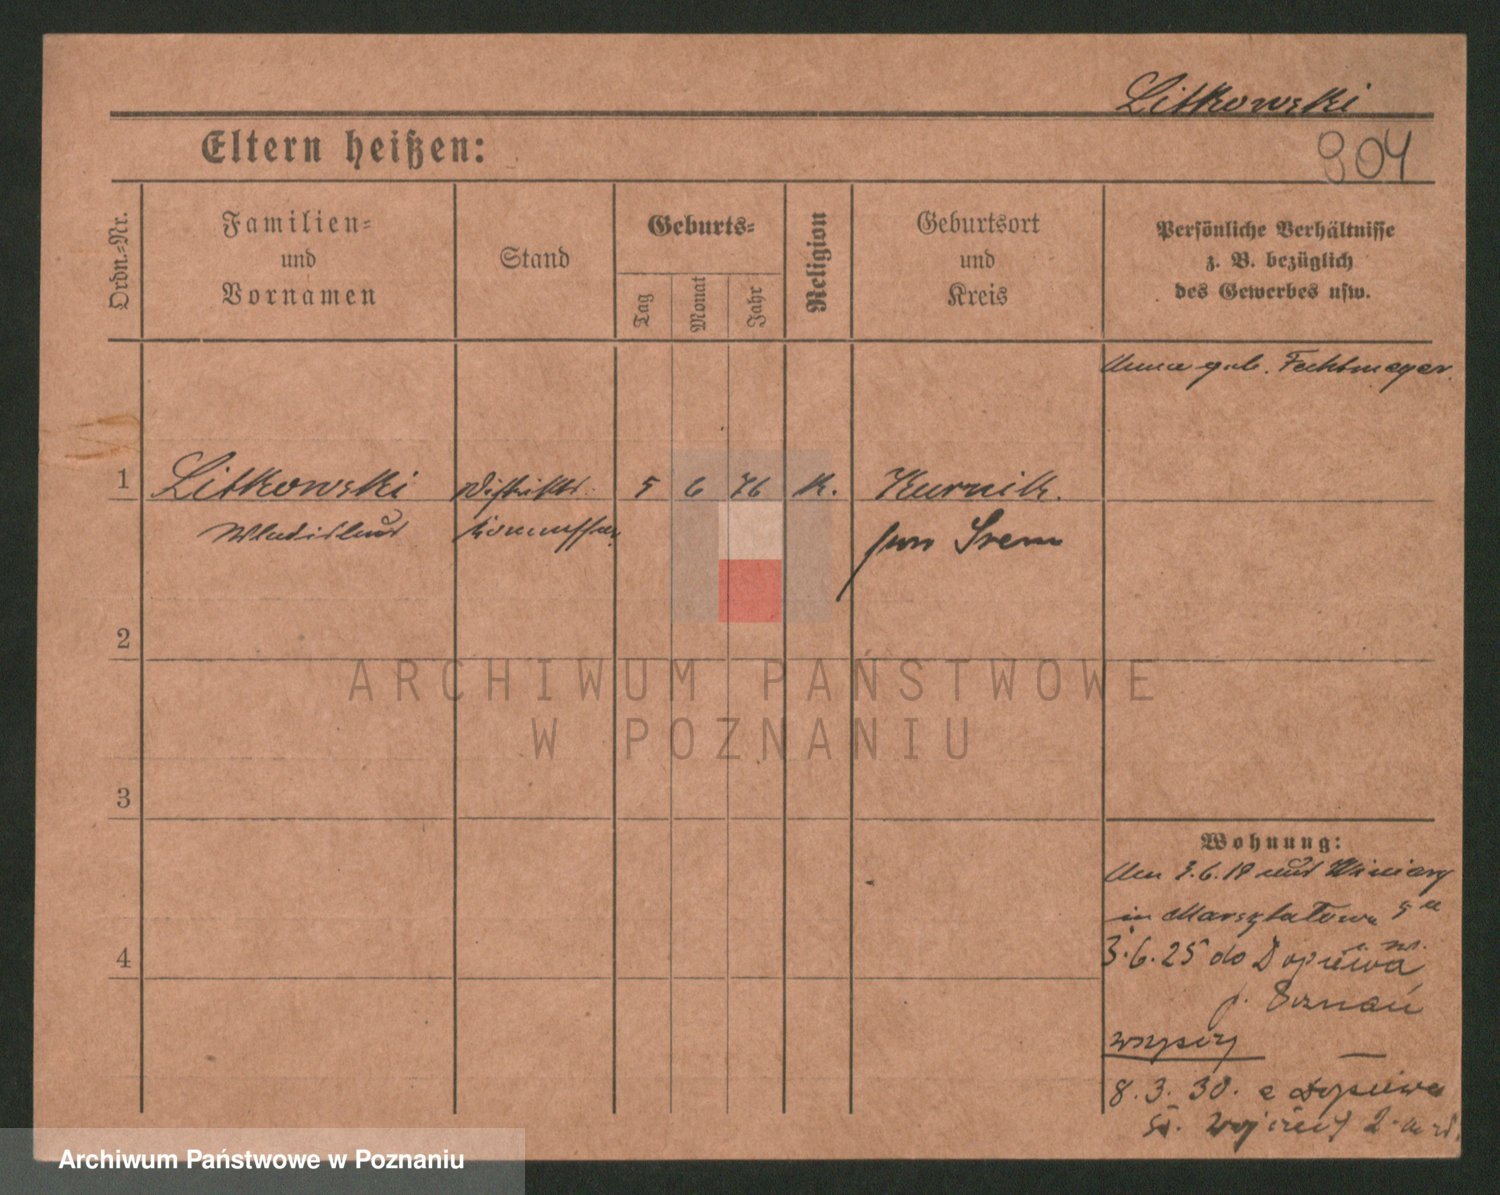 Litkowski
904
Eltern heißen:
Ordn.-Nr.
Familien-
und
Vornamen
Stand
Geburts-
Tag
Monat
Jahr
Religion
Geburtsort
und
Kreis
Persönliche Verhältnisse
z. B. bezüglich
des Gewerbes usw.
Anna geb. Fechtmeyer
1
Litkowski
Distrikts-
5
6
76
K.
Kurnik.
Wladislaus
Kommissar
Srem
2
ARCHIWUM PAŃSTWOWE
W POZNANIU
3
Wohnung:
3.6.19 aus Winiary
in Marszałkowa 5
4
3.6.25 do Dopiewa
p. Poznań
wszyscy
8.3.30. z Dopiewa
św. Wojciech 2
Archiwum Państwowe w Poznaniu